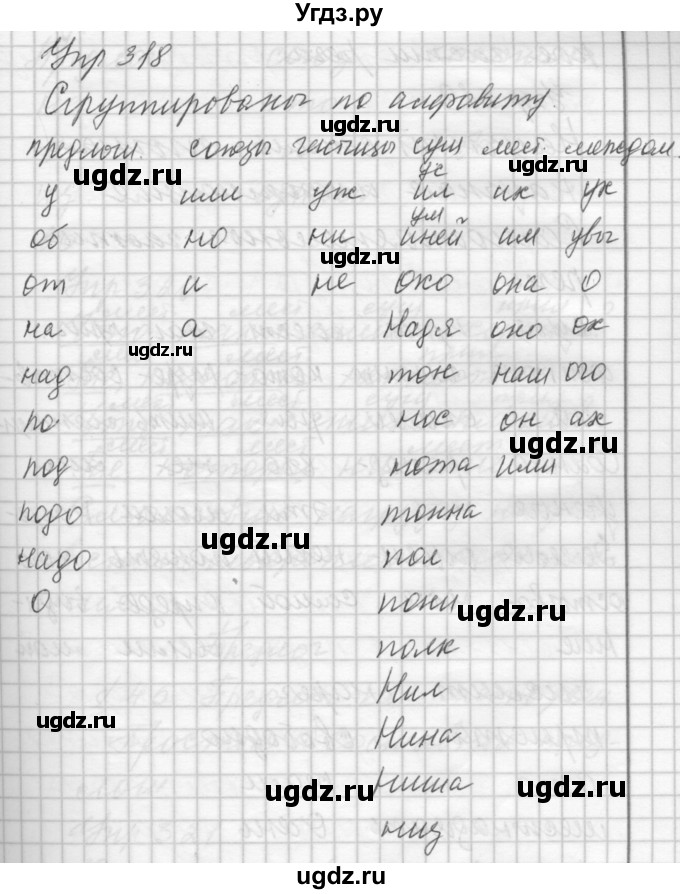 Угдз.ру
Упр 318
Сгруппированы по алфавиту.
ugdz.ru
предлоги. союзы частицы сущ мест. междом.
ugdz.ru ugdz.ru
ус
у или уж ил их ух
ум
об но ни иней им увы
ugdz.ru
от и не око она о
на а Надя оно ох
ugdz.ru
над тон наш ого
по нос он ах
ugdz.ru
под нота или
подо тонна
ugdz.ru
надо пол
о пони
ugdz.ru
полк
Нил
ugdz.ru
Нина
ниша
ugdz.ru ugdz.ru
низ